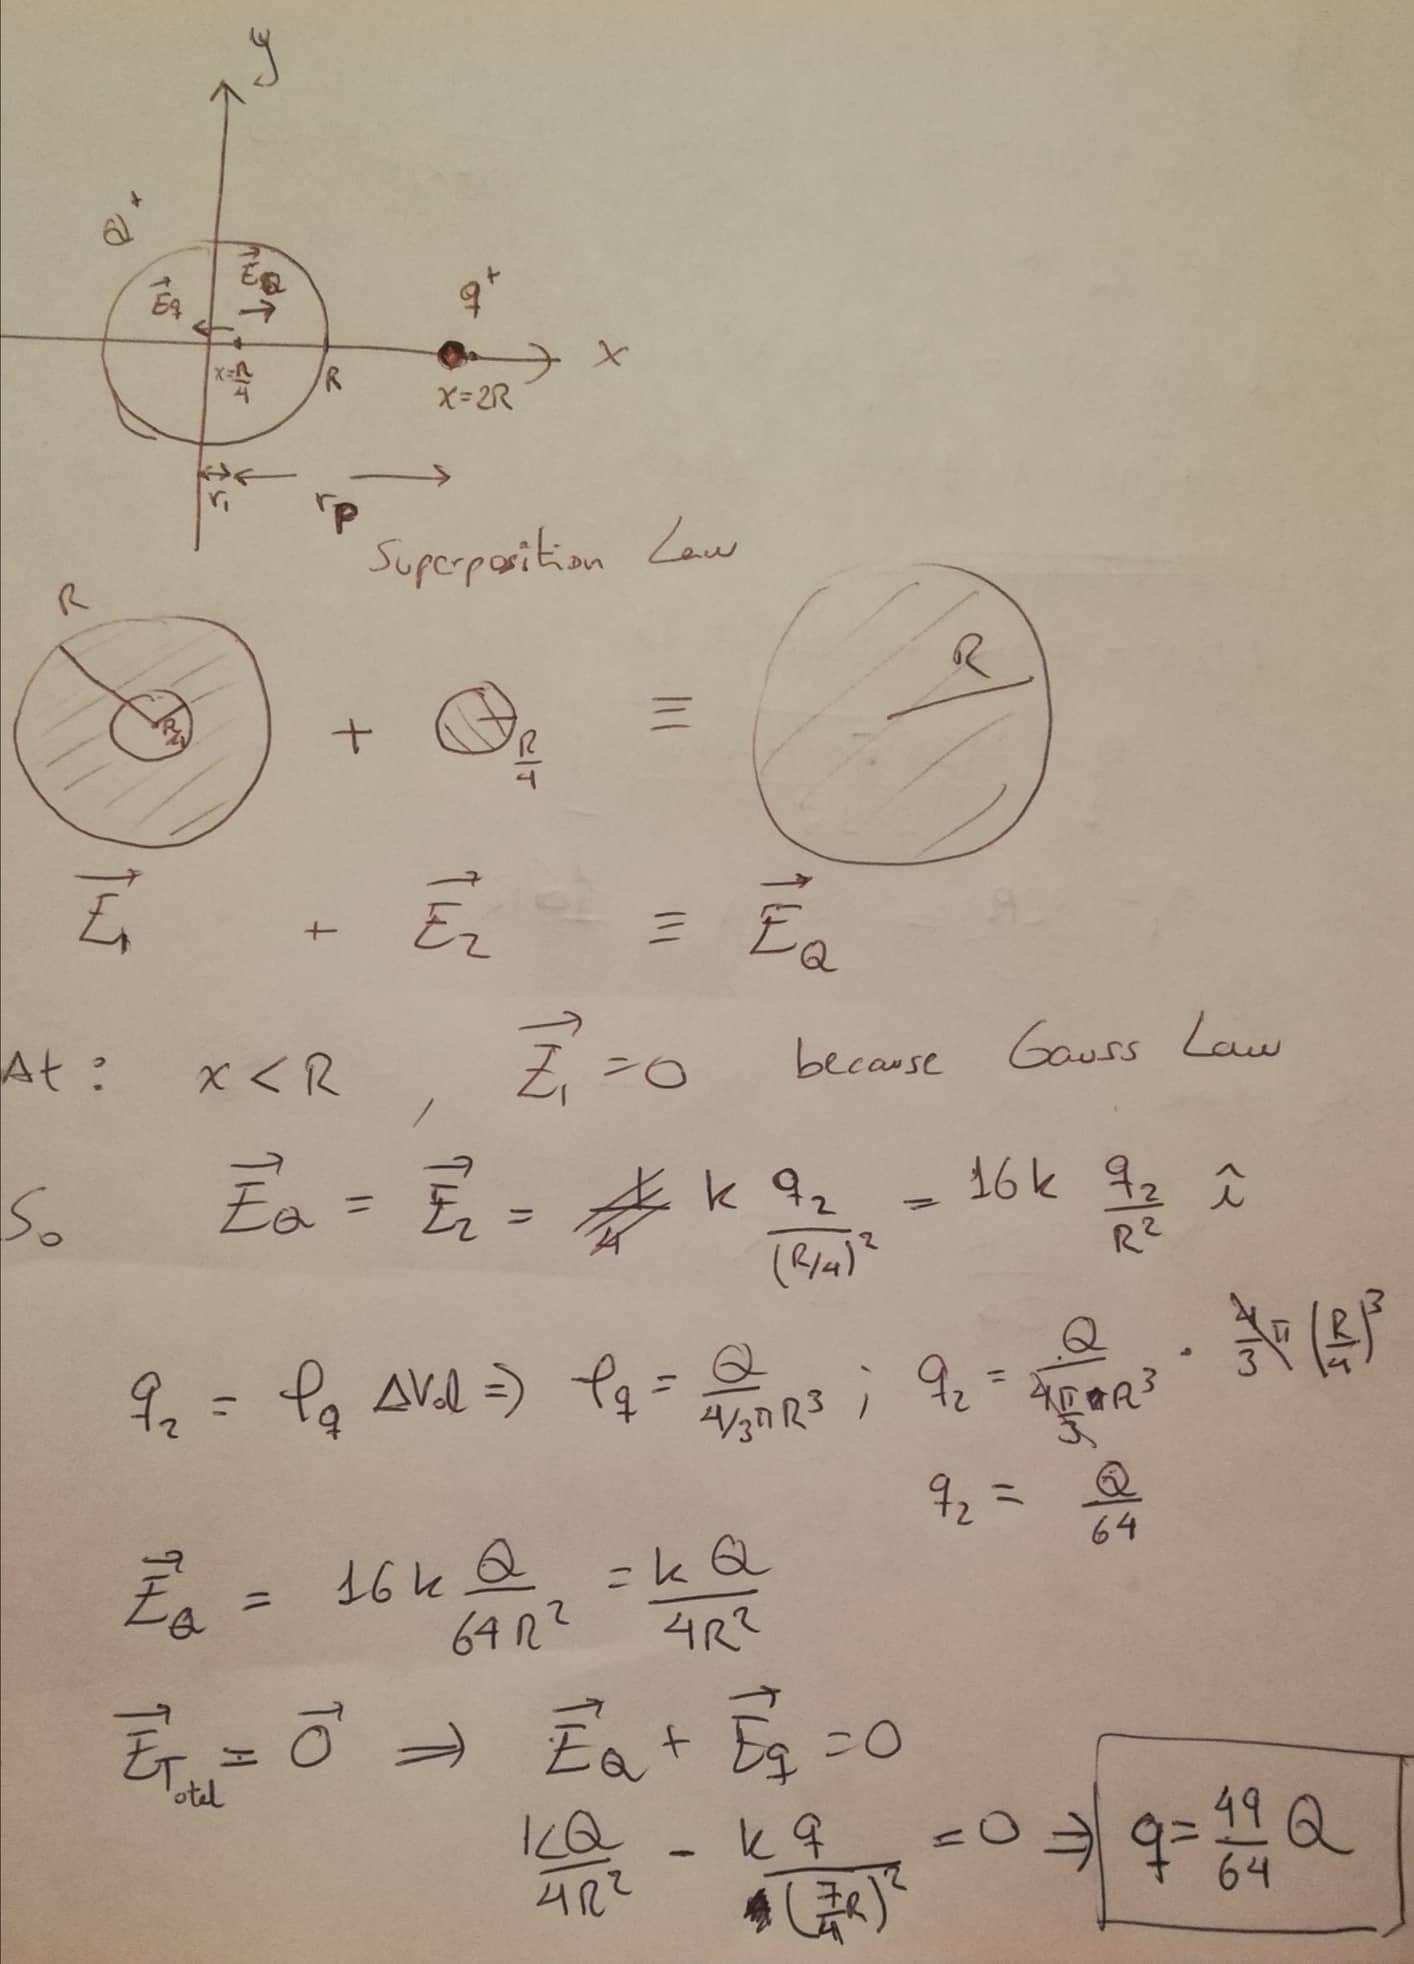 y
Q⁺
E⃗q E⃗Q q⁺
x=R/4 R x=2R x
r₁ rp
Superposition Law
R
R/4 + R/4 ≡ R
E⃗₁ + E⃗₂ ≡ E⃗Q
At: x < R , E⃗₁ = 0 because Gauss Law
So E⃗Q = E⃗₂ = k q₂/(R/4)² = 16k q₂/R² î
q₂ = ρq ΔVol ⇒ ρq = Q/(4/3πR³) ; q₂ = Q/(4π/3 R³) · 4/3 π (R/4)³
q₂ = Q/64
E⃗Q = 16k Q/(64R²) = kQ/(4R²)
E⃗Total = 0⃗ ⇒ E⃗Q + E⃗q = 0
kQ/(4R²) - kq/(7/4 R)² = 0 ⇒ q = 49/64 Q